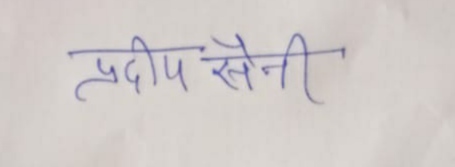 प्रदीप सैनी